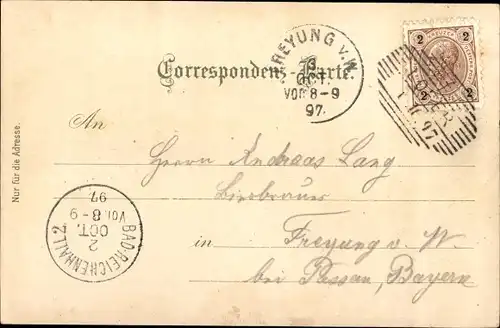 FREYUNG v. W.
3
OCT.
VOR 8-9
97.
2 KREUZER 2
2 2
Correspondenz-Karte.
An
Herrn Andreas Lang
Bierbrauer
in
Freyung v. W.
bei Passau, Bayern
Nur für die Adresse.
BAD REICHENHALL 2
2
OCT.
Vor. 8-9
97.